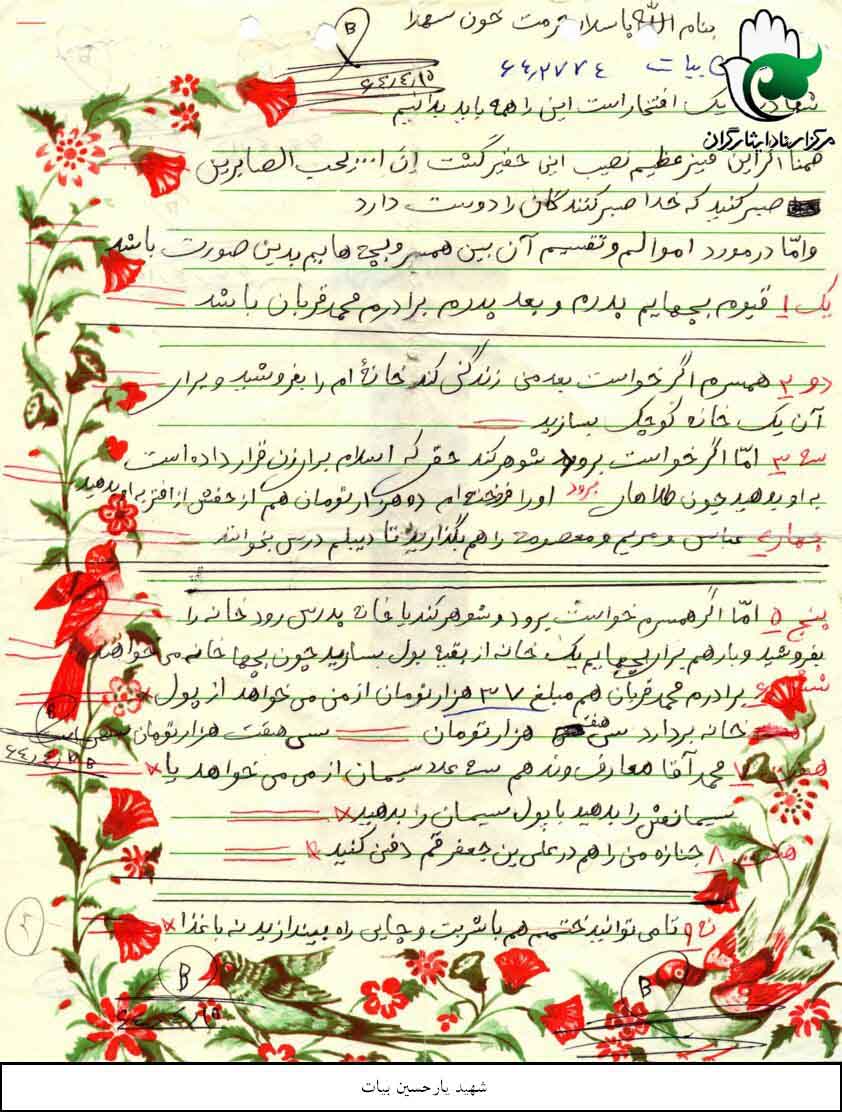 بنام الله پاسدار حرمت خون شهدا
B
۶۴/۴/۱۵
بیات ۶۴/۲۷۷۴
شهادت یک افتخار است این را همه باید بدانیم
مرکز اسناد ایثارگران
همنا اگر این فیض عظیم نصیب این حقیر گشت إنّ ا... یحب الصابرین
صبر کنید که خدا صبر کنندگان را دوست دارد
و امّا در مورد اموالم و تقسیم آن بین همسر و بچه هایم بدین صورت باشد
یک ۱ قیوم بچهایم پدرم و بعد پدرم برادرم محمد قربان باشد
دو ۲ همسرم اگر خواست بعد منی زندگی کند خانهٔ ام را بفروشید و برای
آن یک خانه کوچک بسازید
سه ۳ امّا اگر خواست برود شوهر کند حقی که اسلام برا زن قرار داده است
به او بدهید چون طلاهای او را فروخته ام ده هزار تومان هم از حقش از به او بدهید
برود
چهار ۴ عباس و مریم و معصومه را هم بگذارید تا دیپلم درس بخوانند
پنج ۵ امّا اگر همسرم خواست برود و شوهر کند یا خانه پدرس رود خانه را
بفروشید و بازهم برای بچهایم یک خانه از بقیه پول بسازید چون بچها خانه می خواهند
شش ۶ برادرم محمد قربان هم مبلغ ۳۷ هزار تومان از من می خواهد از پول
خانه بردارد سی هفت هزار تومان سی هفت هزار تومان
B
۶۴/۴/۱۵
هفت ۷ محمد آقا معارف وند هم سه عدد سیمان از من می خواهد یا
سیمانش را بدهید یا پول سیمان را بدهید
هشت ۸ جنازه من را هم در علی بن جعفر قم دفن کنید
نه ۹ تا می توانید ختمم هم با شربت و چایی راه بیندازید نه با غذا
B
۶۴/۴/۱۵
B
شهید یارحسین بیات